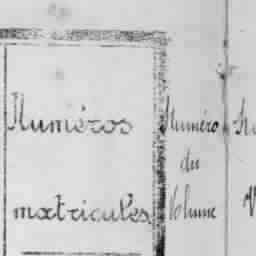 Numéros
matricules
Numéro
du
Volume